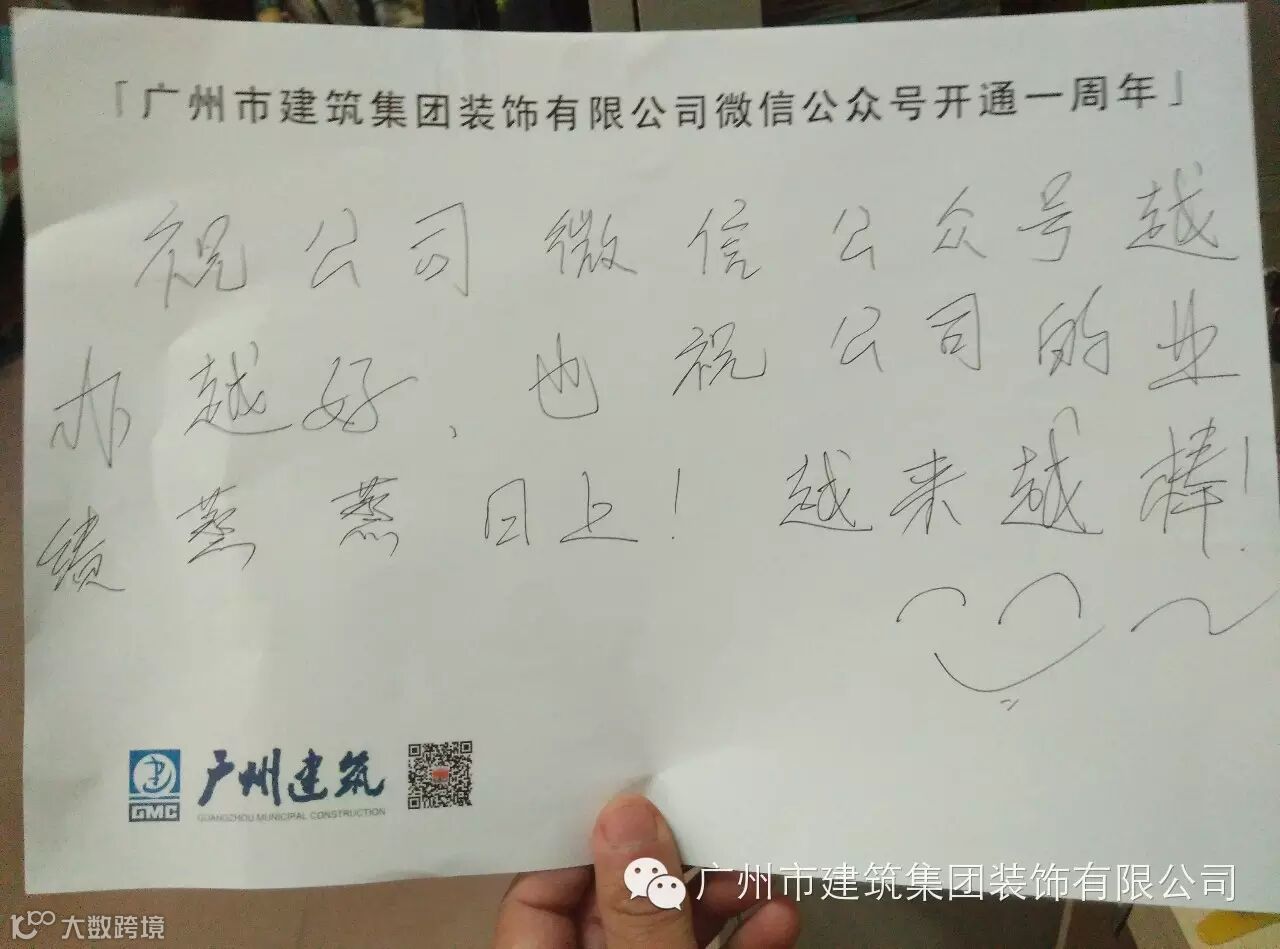 「广州市建筑集团装饰有限公司微信公众号开通一周年」
祝公司微信公众号越
办越好、也祝公司的业
绩蒸蒸日上!越来越棒!
GMC
广州建筑
GUANGZHOU MUNICIPAL CONSTRUCTION
广州市建筑集团装饰有限公司
大数跨境